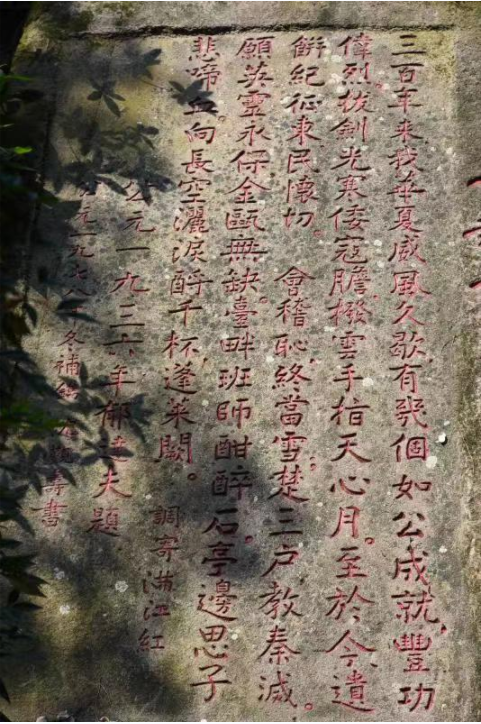 三百年來我華夏威風久歇有幾個如公成就,豐功
偉烈。拔劍光寒倭寇膽,撥雲手指天心月。至於今,遺
餅紀征東民懷切。 會稽恥,終當雪;楚三戶,教秦滅。
願英靈永保金甌無缺。臺畔班師酣醉石。亭邊思子
悲啼血。向長空灑淚酹千杯蓬萊闕。
調寄滿江紅
公元一九三六年郁達夫題
公元一九七八 冬補 壽書